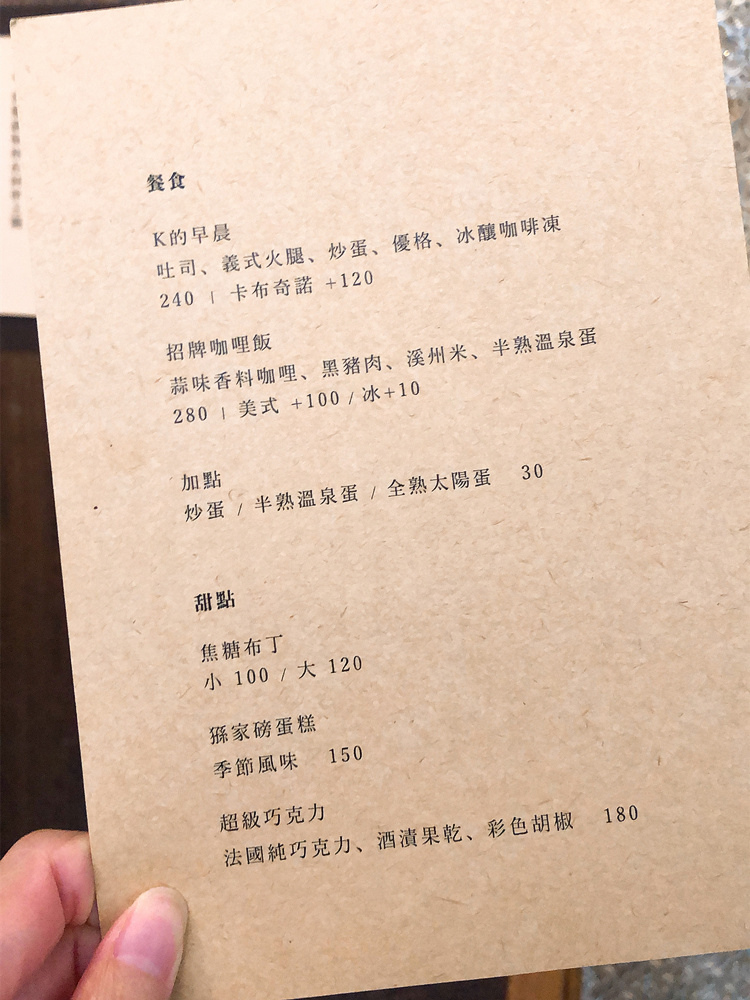 餐食
K的早晨
吐司、義式火腿、炒蛋、優格、冰釀咖啡凍
240 | 卡布奇諾 +120
招牌咖哩飯
蒜味香料咖哩、黑豬肉、溪州米、半熟溫泉蛋
280 | 美式 +100 / 冰+10
加點
炒蛋 / 半熟溫泉蛋 / 全熟太陽蛋 30
甜點
焦糖布丁
小 100 / 大 120
猻家磅蛋糕
季節風味 150
超級巧克力
法國純巧克力、酒漬果乾、彩色胡椒 180